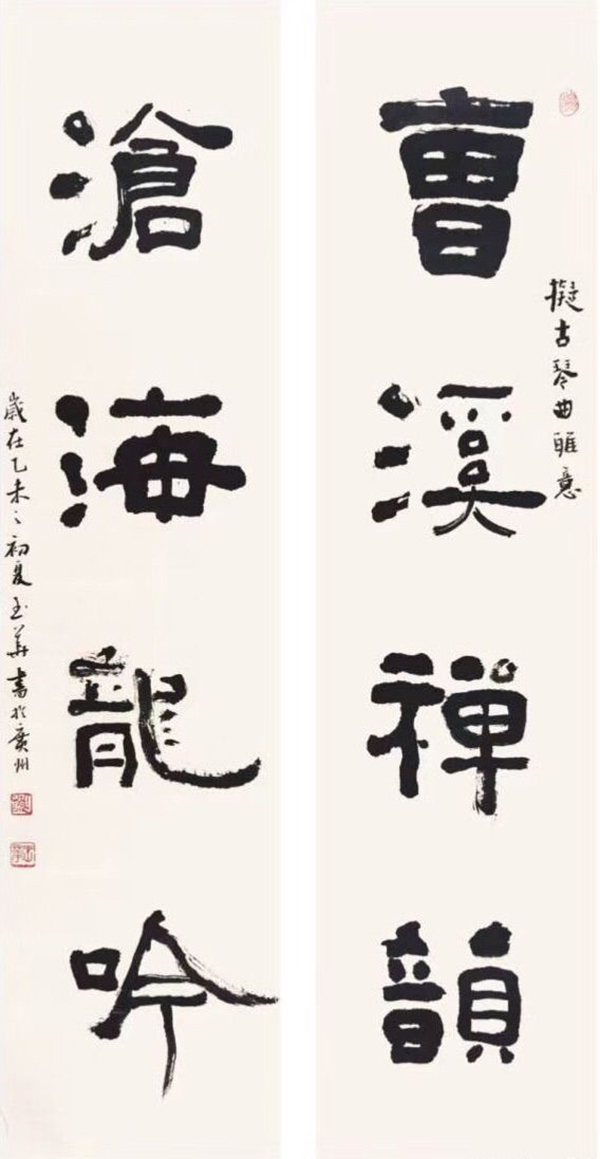 曹溪禪韻
擬古琴曲雅意
滄海龍吟
歲在乙未之初夏玉華書於廣州